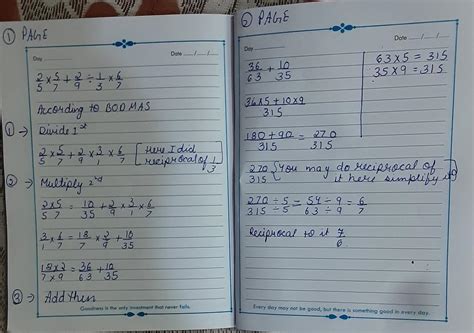 ① PAGE
Day
Date __/__/__
2/5 × 5/7 + 2/9 ÷ 1/3 × 6/7
According to BODMAS
① → Divide 1st
2/5 × 5/7 + 2/9 × 3/1 × 6/7 [Here I did reciprocal of 1/3]
② → Multiply 2nd
2×5/5 7 = 10/35 + 2/9 × 3/1 × 6/7
3/1 × 6/7 = 18/7 × 2/9 + 10/35
18×2/7×9 = 36/63 + 10/35
③ → Add then
Goodness is the only investment that never fails.
② PAGE
Day
Date __/__/__
36/63 + 10/35
63×5 = 315
35×9 = 315
36×5 + 10×9/315
180+90/315 = 270/315
270/315 {You may do reciprocal of it here simplify it}
270÷5/315÷5 = 54÷9/63÷9 = 6/7
Reciprocal to it 7/6
Every day may not be good, but there is something good in every day.